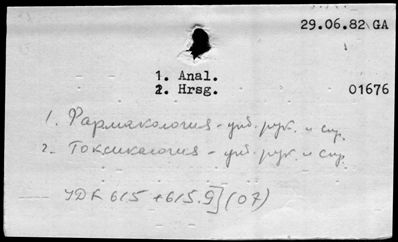 29.06.82 GA
1. Anal.
2. Hrsg. 01676
1. Фармакология - уч. рук. и спр.
2. Токсикология - уч. рук. и спр.
УДК 615 + 615.9](07)